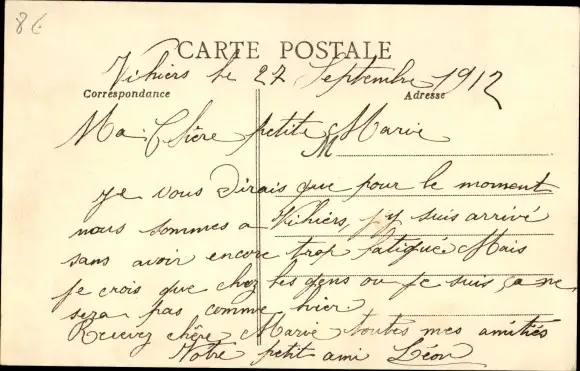 8€
CARTE POSTALE
Vihiers le 27 Septembre 1912
Correspondance
Adresse
Ma Chère petite Marie
M
je vous dirais que pour le moment
nous sommes a Vihiers, j'y suis arrivé
sans avoir encore trop fatigué Mais
je crois que chez les gens ou je suis ça ne
sera pas comme hier.
Recevez chère Marie toutes mes amitiés
Votre petit ami Léon